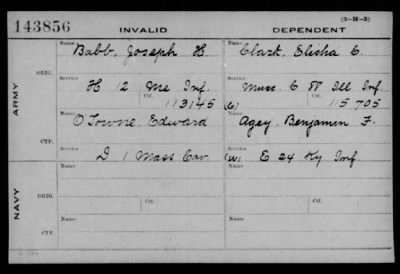 (3-H-3)
143856 INVALID DEPENDENT
ARMY
ORIG.
Name: Babb, Joseph H. Name: Clark, Elisha C.
Service: H 12 Me Inf. Service: Musc. C Ill Inf.
Ctf. 113145 (C) Ctf. 115705
CTF.
Name: O'Towne, Edward Name: Agey, Benjamin F.
Service: D 1 Mass Cav. (W) Service: E 24 Ky Inf
NAVY
ORIG.
Name: Name:
Service: Ctf. Service: Ctf.
CTF.
Name: Name:
Service: Service: